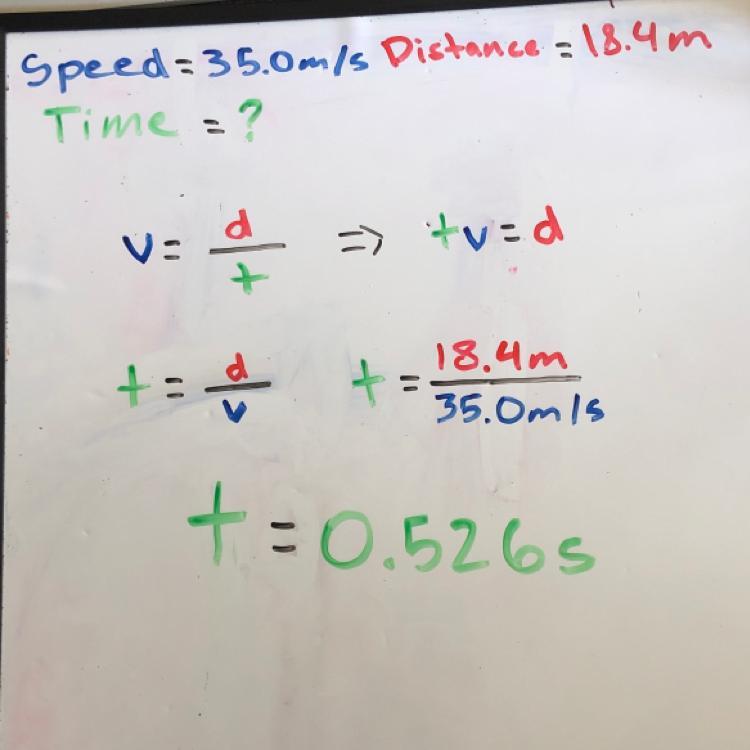 Speed = 35.0m/s Distance = 18.4m
Time = ?
v = d/t => tv = d
t = d/v t = 18.4m/35.0m/s
t = 0.526s